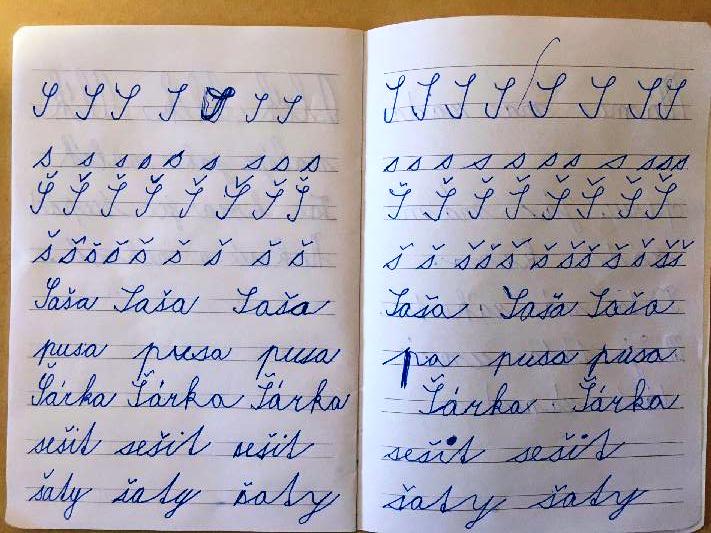 S S S S S S S
s s s s s s s s s
Š Š Š Š Š Š Š Š
š š š š š š š š š
Saša Saša Saša
pusa pusa pusa
Šárka Šárka Šárka
sešit sešit sešit
šaty šaty šaty
S S S S S S S S
s s s s s s s s s s s
Š Š Š Š Š Š Š Š
š š š š š š š š š š š š
Saša Saša Saša
pa pusa pusa
Šárka Šárka
sešit sešit
šaty šaty